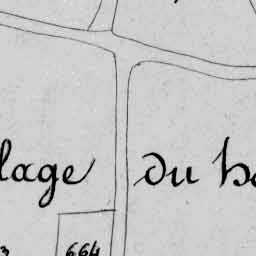 lage du ha
664